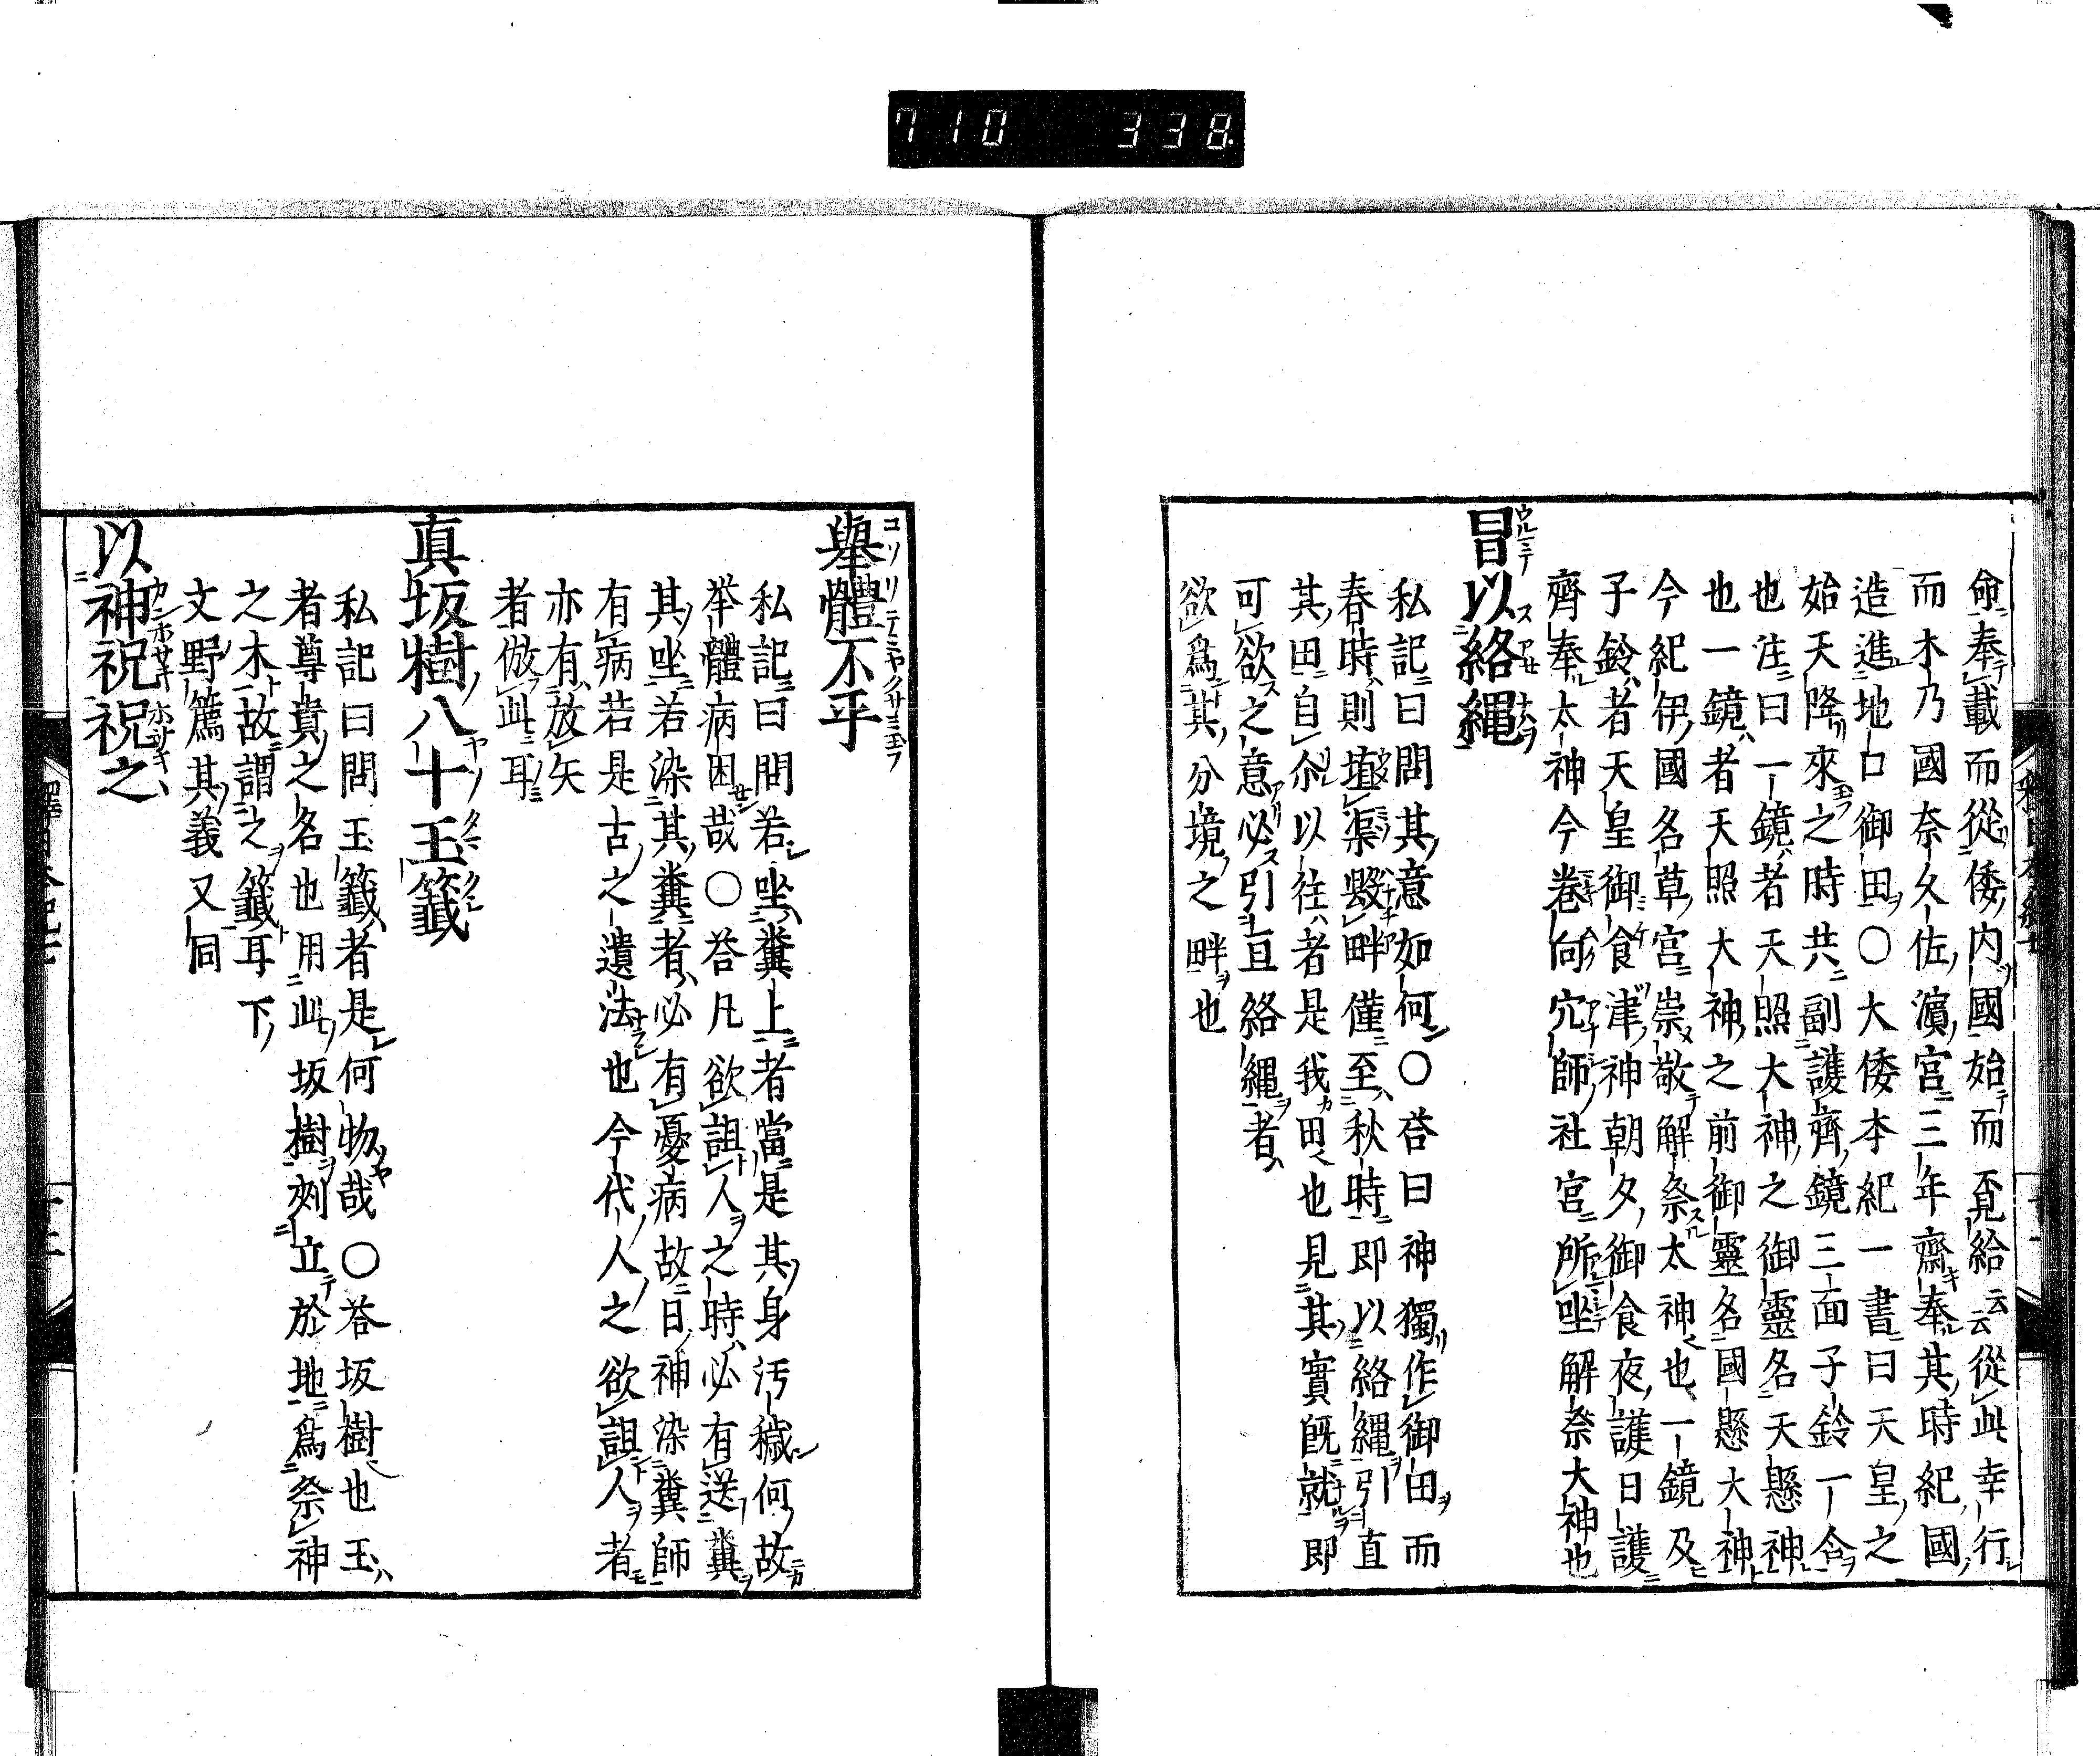 710 338
命奉載而從倭内國始而覓給云云從此幸行
而木乃國奈久佐濵宮三年齋奉其時紀國
造進地口御田〇大倭本紀一書曰天皇之
始天降來之時共副護齊鏡三面子鈴一合
也注曰一鏡者天照大神之御靈名天懸神
也一鏡者天照大神之前御靈名國懸大神
今紀伊國名草宮崇敬解祭太神也一鏡及
子鈴者天皇御食津神朝夕御食夜護日護
齊奉太神今卷向穴師社宮所坐解祭大神也
冒以絡縄
私記曰問其意如何〇荅曰神獨作御田而
春時則填渠毀畔僅至秋時即以絡縄引直
其田自尒以往者是我田也見其實既就即
可欲之意必引亘絡縄者
欲爲其分境之畔也
擧體不平
私記曰問若坐糞上者當是其身汚穢何故
举體病困哉〇荅凡欲詛人之時必有送糞
其坐若染其糞者必有憂病故日神染糞師
有病若是古之遺法也今代人之欲詛人者
亦有放矢
者倣此耳
真坂樹八十玉籤
私記曰問玉籤者是何物哉〇荅坂樹也玉
者尊貴之名也用此坂樹刾立於地爲祭神
之木故謂之籤耳下
文野篶其義又同
以神祝祝之